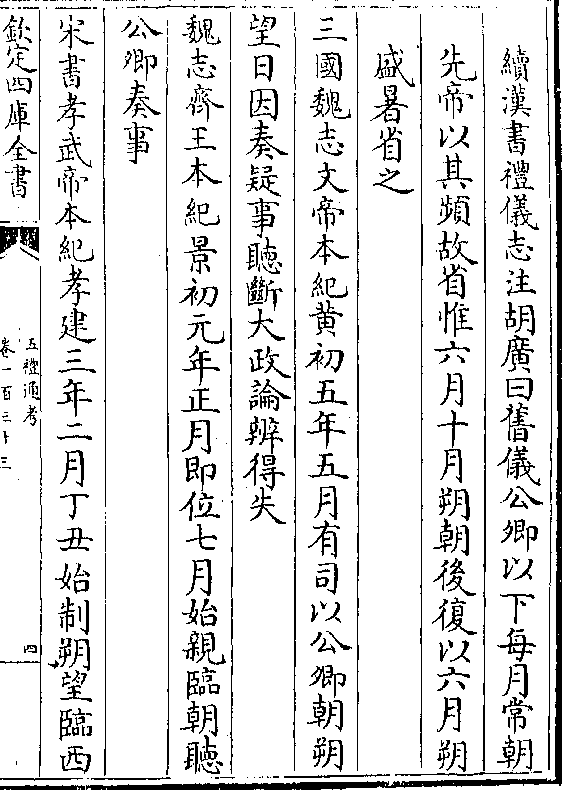 續漢書禮儀志注胡廣曰舊儀公卿以下每月常朝
先帝以其頻故省惟六月十月朔朝後復以六月朔
盛暑省之
三國魏志文帝本紀黄初五年五月有司以公卿朝朔
望日因奏疑事聽斷大政論辨得失
魏志齊王本紀景初元年正月即位七月始親臨朝聽
公卿奏事
宋書孝武帝本紀孝建三年二月丁丑始制朔望臨西
欽定四庫全書
五禮通考
卷一百三十三
四